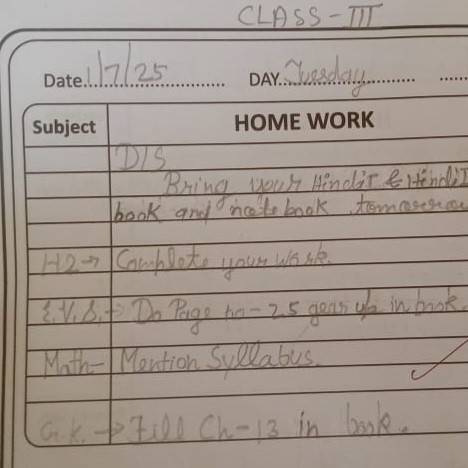 CLASS - III
Date 1/7/25 DAY Tuesday
Subject HOME WORK
D/S
Bring your Hindi I & Hindi II
book and note book tomorrow
H2 → Complete your work.
E.V.S. → Do Page no - 25 gear up in book.
Math - Mention Syllabus.
G.K. → Fill Ch - 13 in book.